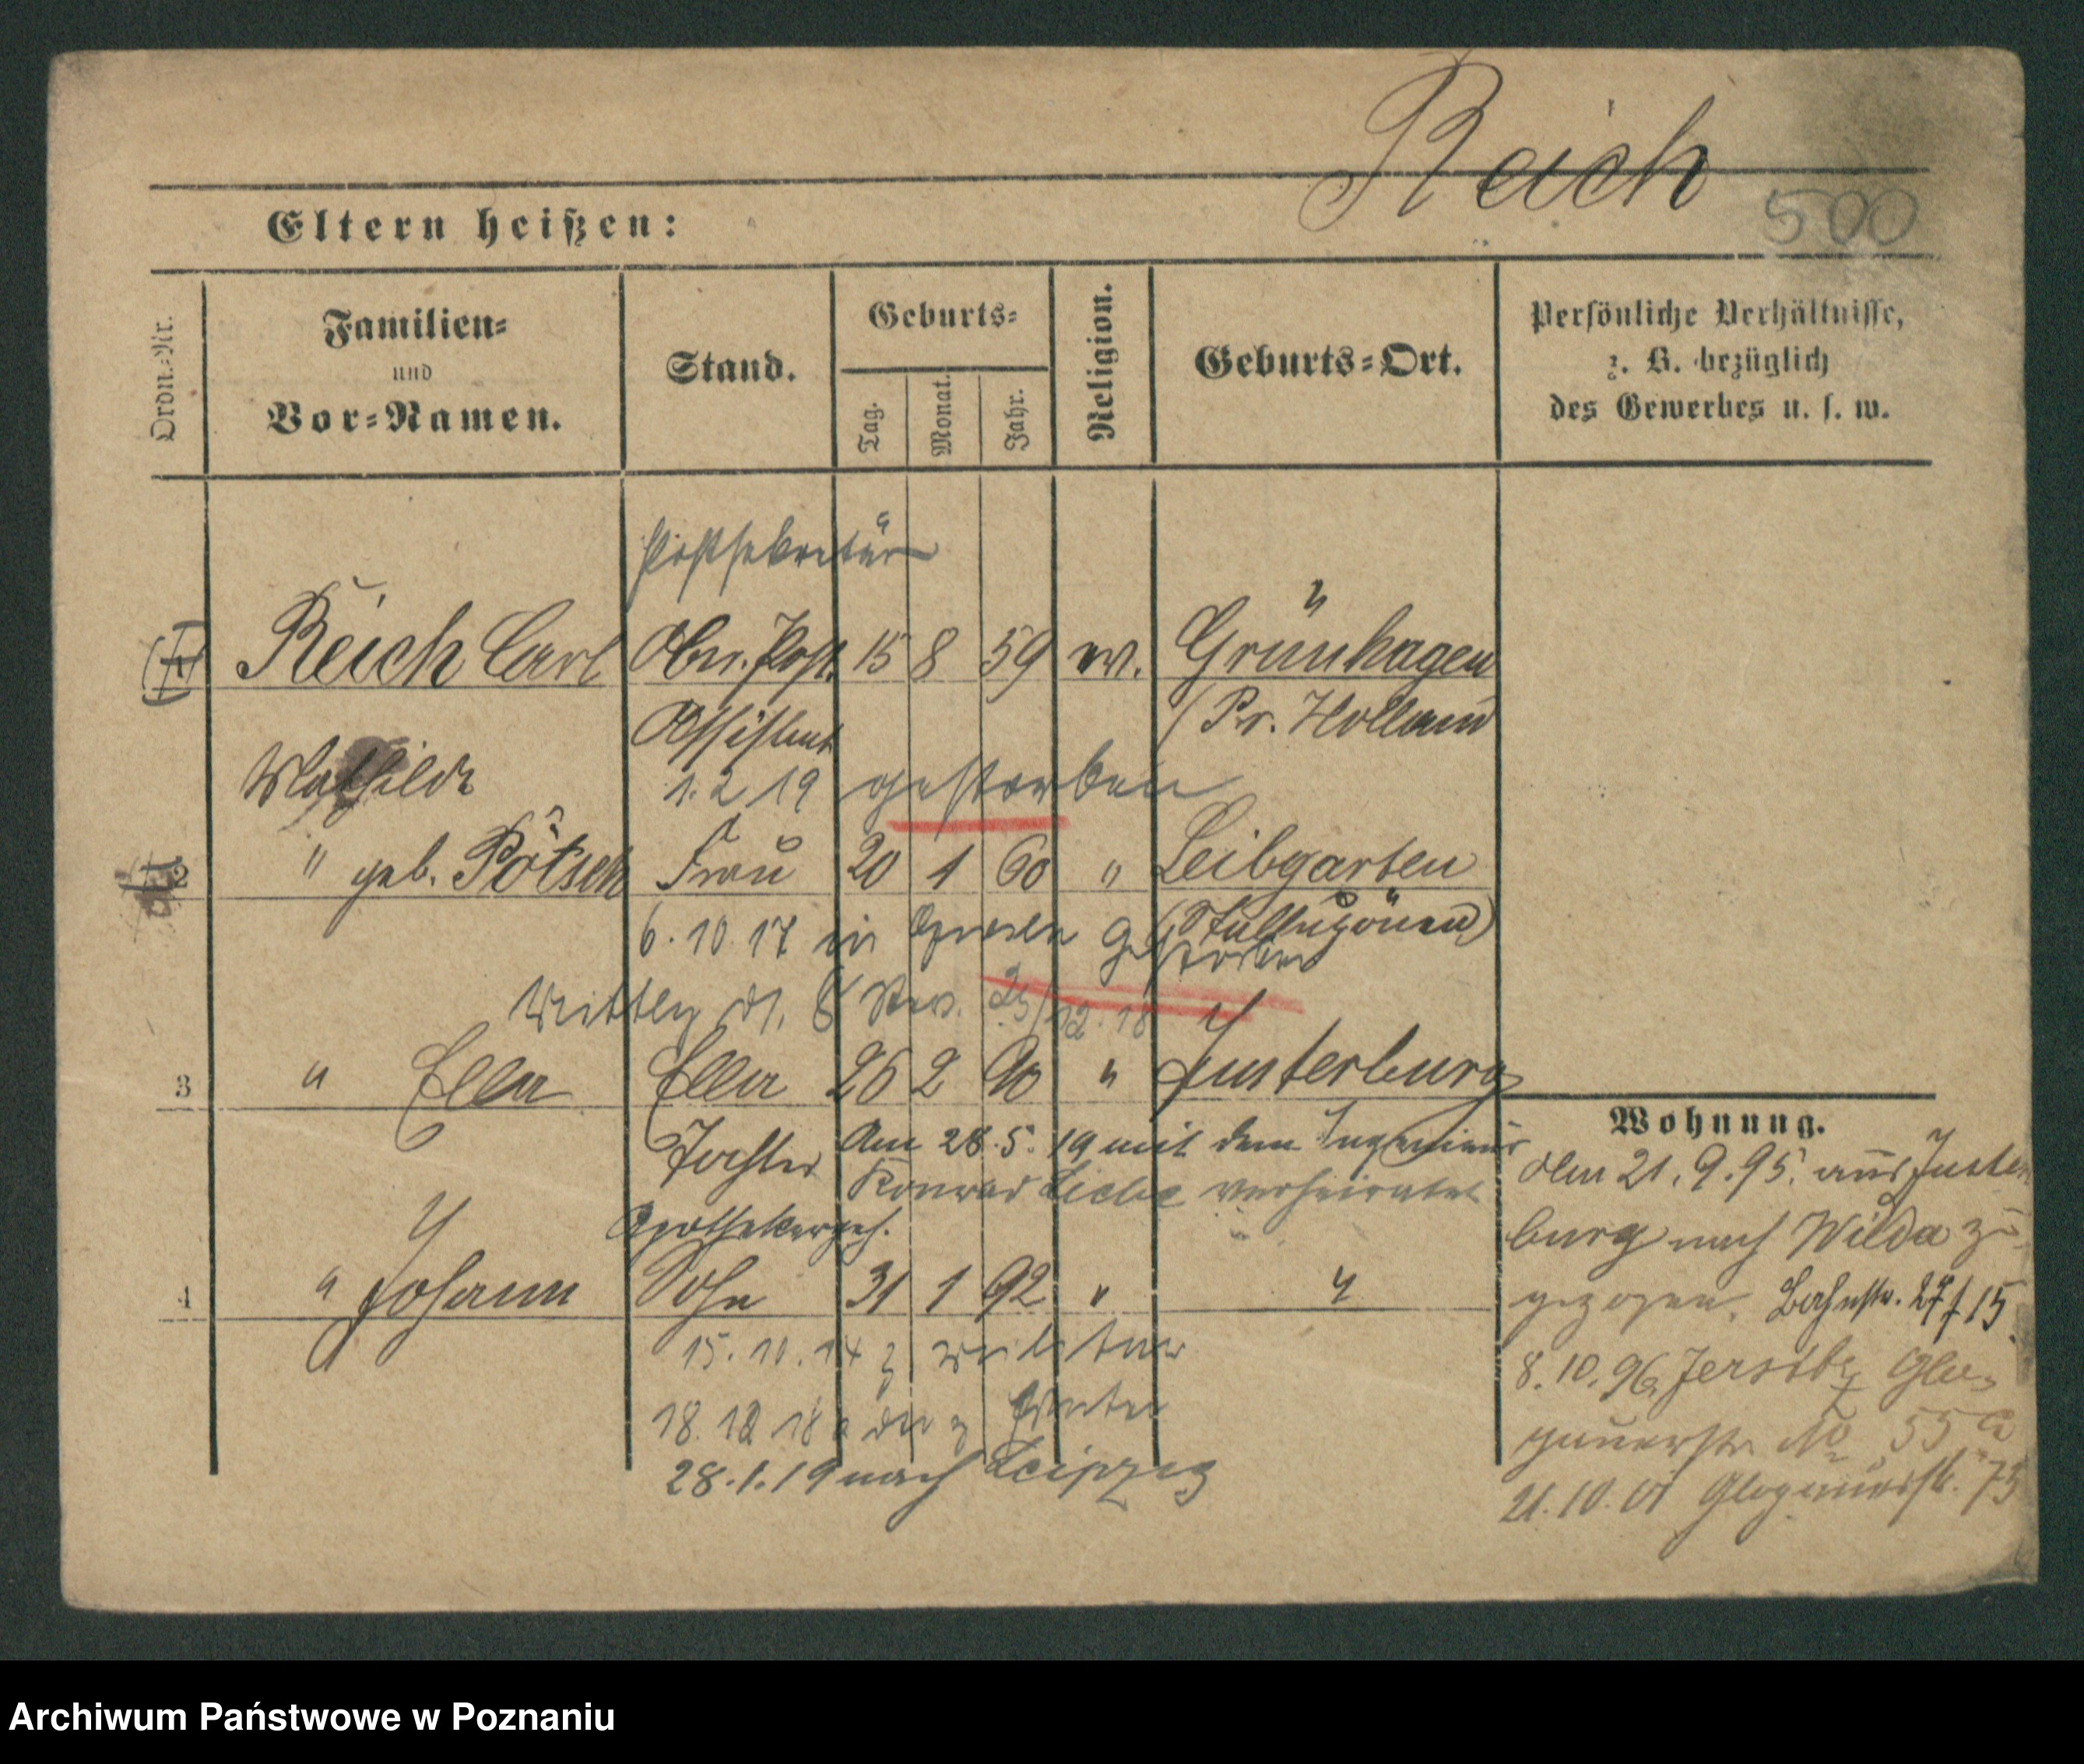 Reich
500
Eltern heißen:
Ordn.-Nr.
Familien-
und
Vor-Namen.
Stand.
Geburts-
Tag.
Monat.
Jahr.
Religion.
Geburts-Ort.
Persönliche Verhältnisse,
z. B. bezüglich
des Gewerbes u. s. w.
Postsekretär
Reich Carl Ober. Post. 15 8 59 ev. Grünhagen
Assistent / Pr. Holland
Mathilde 1. 2 19 gestorben
2 " geb. Pötsch Frau 20 1 60 " Leibgarten
6. 10. 17 in gestorben (Stallupönen)
3 " Ella Ella 26 2 90 " Insterburg
Tochter Am 28. 5. 19 mit dem Ingenieur
Konrad verheiratet
Apothekergeh.
4 " Johann Sohn 31 1 92 " "
15. 10. 14 z Militär
18. 12 18
28. 1. 19 nach Leipzig
Wohnung.
Am 21. 9. 95. aus Inster
burg nach Wilda zu
gezogen. Bahnstr. 27/15.
8. 10. 96. Jersitz Glo-
gauerstr. No 55a
21. 10. 01 Glogauerstr. 73
Archiwum Państwowe w Poznaniu